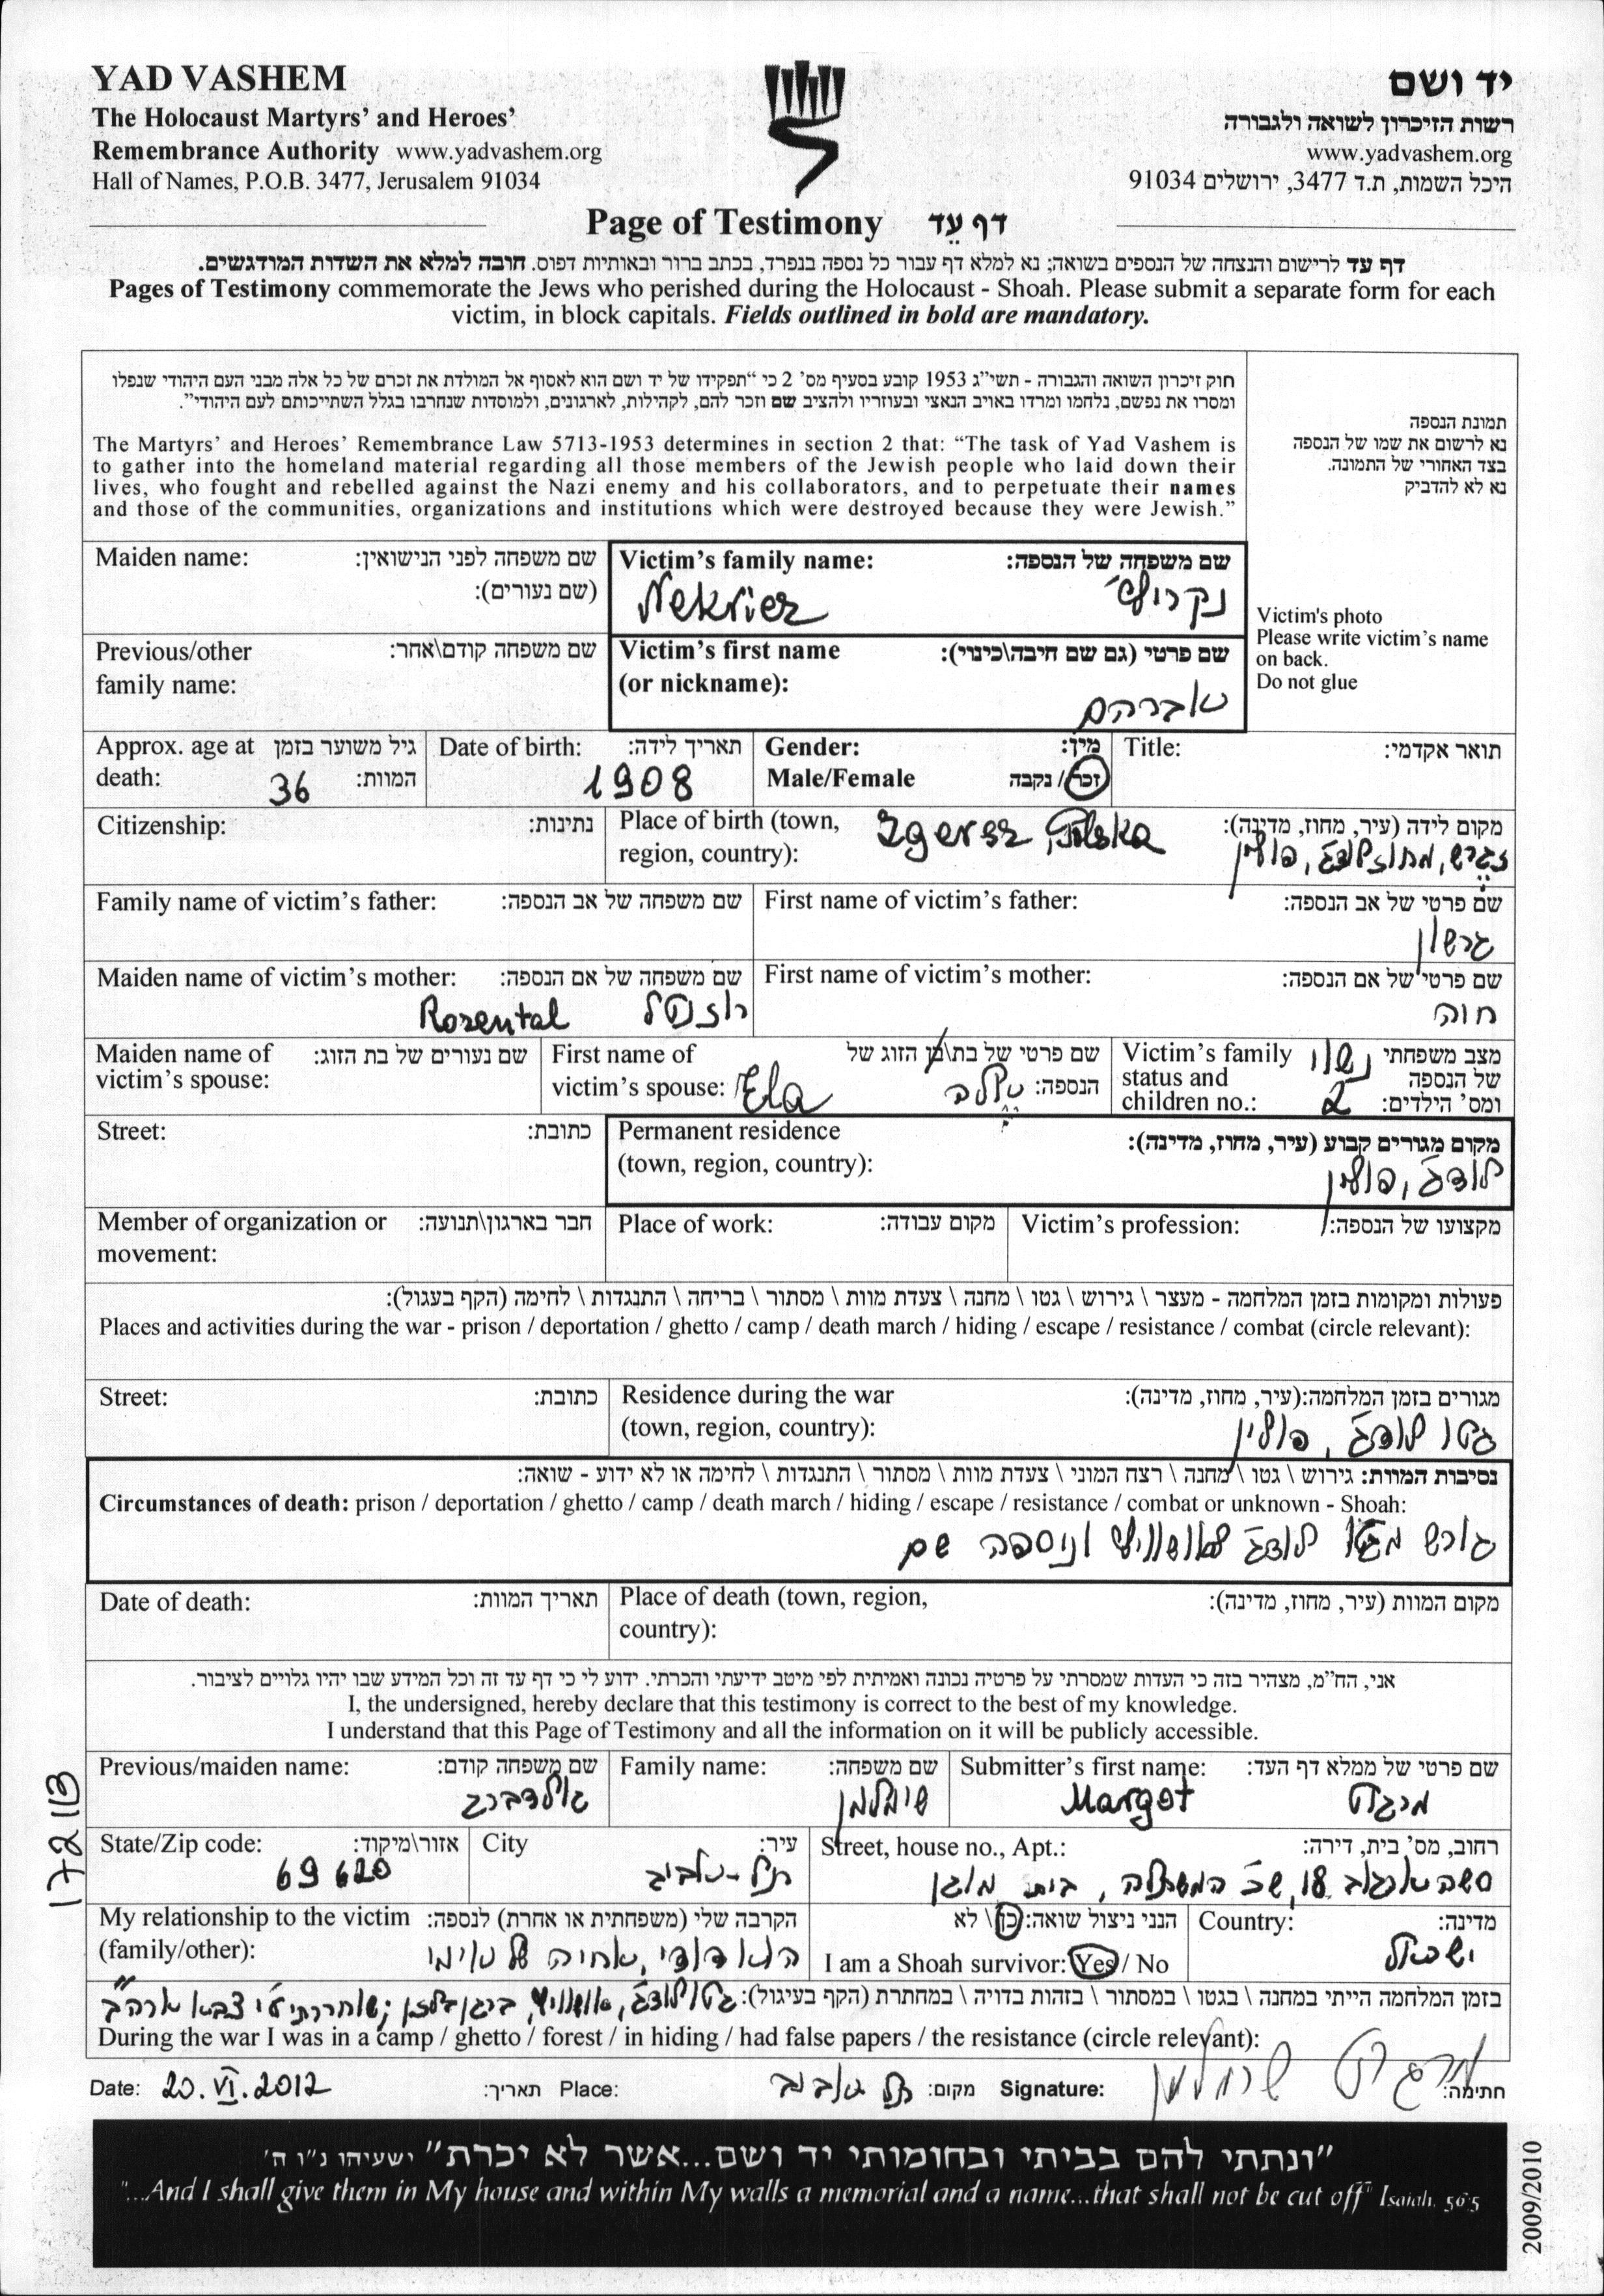 YAD VASHEM
The Holocaust Martyrs' and Heroes'
Remembrance Authority www.yadvashem.org
Hall of Names, P.O.B. 3477, Jerusalem 91034
יד ושם
רשות הזיכרון לשואה ולגבורה
www.yadvashem.org
היכל השמות, ת.ד 3477, ירושלים 91034
Page of Testimony דף עֵד
דף עד לרישום והנצחה של הנספים בשואה; נא למלא דף עבור כל נספה בנפרד, בכתב ברור ובאותיות דפוס. חובה למלא את השדות המודגשים.
Pages of Testimony commemorate the Jews who perished during the Holocaust - Shoah. Please submit a separate form for each
victim, in block capitals. Fields outlined in bold are mandatory.
חוק זיכרון השואה והגבורה - תשי"ג 1953 קובע בסעיף מס' 2 כי "תפקידו של יד ושם הוא לאסוף אל המולדת את זכרם של כל אלה מבני העם היהודי שנפלו
ומסרו את נפשם, נלחמו ומרדו באויב הנאצי ובעוזריו ולהציב שם וזכר להם, לקהילות, לארגונים, ולמוסדות שנחרבו בגלל השתייכותם לעם היהודי".
The Martyrs' and Heroes' Remembrance Law 5713-1953 determines in section 2 that: "The task of Yad Vashem is
to gather into the homeland material regarding all those members of the Jewish people who laid down their
lives, who fought and rebelled against the Nazi enemy and his collaborators, and to perpetuate their names
and those of the communities, organizations and institutions which were destroyed because they were Jewish."
תמונת הנספה
נא לרשום את שמו של הנספה
בצד האחורי של התמונה.
נא לא להדביק
Victim's photo
Please write victim's name
on back.
Do not glue
Maiden name: שם משפחה לפני הנישואין:
(שם נעורים):
Victim's family name: שם משפחה של הנספה:
Nekrier נקריץ'
Previous/other שם משפחה קודם\אחר:
family name:
Victim's first name שם פרטי (גם שם חיבה\כינוי):
(or nickname):
אברהם
Approx. age at גיל משוער בזמן
death: 36 המוות:
Date of birth: תאריך לידה:
1908
Gender: מין:
Male/Female זכר / נקבה
Title: תואר אקדמי:
Citizenship: נתינות:
Place of birth (town, Zgersz Polska מקום לידה (עיר, מחוז, מדינה):
region, country): זגרש, מחוז לודג', פולין
Family name of victim's father: שם משפחה של אב הנספה:
First name of victim's father: שם פרטי של אב הנספה:
גרשון
Maiden name of victim's mother: שם משפחה של אם הנספה:
Rozental רוזנטל
First name of victim's mother: שם פרטי של אם הנספה:
חוה
Maiden name of שם נעורים של בת הזוג:
victim's spouse:
First name of שם פרטי של בת\בן הזוג של
victim's spouse: Ela הנספה: אלה
Victim's family מצב משפחתי נשוי
status and של הנספה
children no.: 2 ומס' הילדים:
Street: כתובת:
Permanent residence מקום מגורים קבוע (עיר, מחוז, מדינה):
(town, region, country): לודג', פולין
Member of organization or חבר בארגון\תנועה:
movement:
Place of work: מקום עבודה:
Victim's profession: מקצועו של הנספה:
פעולות ומקומות בזמן המלחמה - מעצר \ גירוש \ גטו \ מחנה \ צעדת מוות \ מסתור \ בריחה \ התנגדות \ לחימה (הקף בעגול):
Places and activities during the war - prison / deportation / ghetto / camp / death march / hiding / escape / resistance / combat (circle relevant):
Street: כתובת:
Residence during the war מגורים בזמן המלחמה:(עיר, מחוז, מדינה):
(town, region, country): גטו לודג', פולין
נסיבות המוות: גירוש \ גטו \ מחנה \ רצח המוני \ צעדת מוות \ מסתור \ התנגדות \ לחימה או לא ידוע - שואה:
Circumstances of death: prison / deportation / ghetto / camp / death march / hiding / escape / resistance / combat or unknown - Shoah:
גורש מגטו לודג' לאושוויץ וניספה שם
Date of death: תאריך המוות:
Place of death (town, region, מקום המוות (עיר, מחוז, מדינה):
country):
אני, הח"מ, מצהיר בזה כי העדות שמסרתי על פרטיה נכונה ואמיתית לפי מיטב ידיעתי והכרתי. ידוע לי כי דף עד זה וכל המידע שבו יהיו גלויים לציבור.
I, the undersigned, hereby declare that this testimony is correct to the best of my knowledge.
I understand that this Page of Testimony and all the information on it will be publicly accessible.
Previous/maiden name: שם משפחה קודם:
גולדברג
Family name: שם משפחה:
שוולמן
Submitter's first name: שם פרטי של ממלא דף העד:
Margot מרגוט
State/Zip code: אזור\מיקוד:
69620
City עיר:
תל-אביב
Street, house no., Apt.: רחוב, מס' בית, דירה:
18, שכ' המשתלה, בית מוגן
My relationship to the victim הקרבה שלי (משפחתית או אחרת) לנספה:
(family/other): הוא דודי, אחיה של אימי
הנני ניצול שואה: כן \ לא
I am a Shoah survivor: Yes / No
Country: מדינה:
ישראל
בזמן המלחמה הייתי במחנה \ בגטו \ במסתור \ בזהות בדויה \ במחתרת (הקף בעיגול): גטו לודג', אושוויץ, ברגן בלזן; שוחררתי ע"י צבא ארה"ב
During the war I was in a camp / ghetto / forest / in hiding / had false papers / the resistance (circle relevant):
Date: 20.VI.2012 תאריך: Place: תל אביב מקום: Signature: מרגוט שוולמן חתימה:
"ונתתי להם בביתי ובחומותי יד ושם...אשר לא יכרת" ישעיהו נ"ו ה'
"...And I shall give them in My house and within My walls a memorial and a name...that shall not be cut off" Isaiah, 56:5
2009/2010